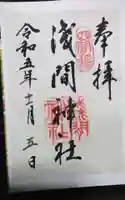 奉拝
淺間神社
令和五年十一月五日